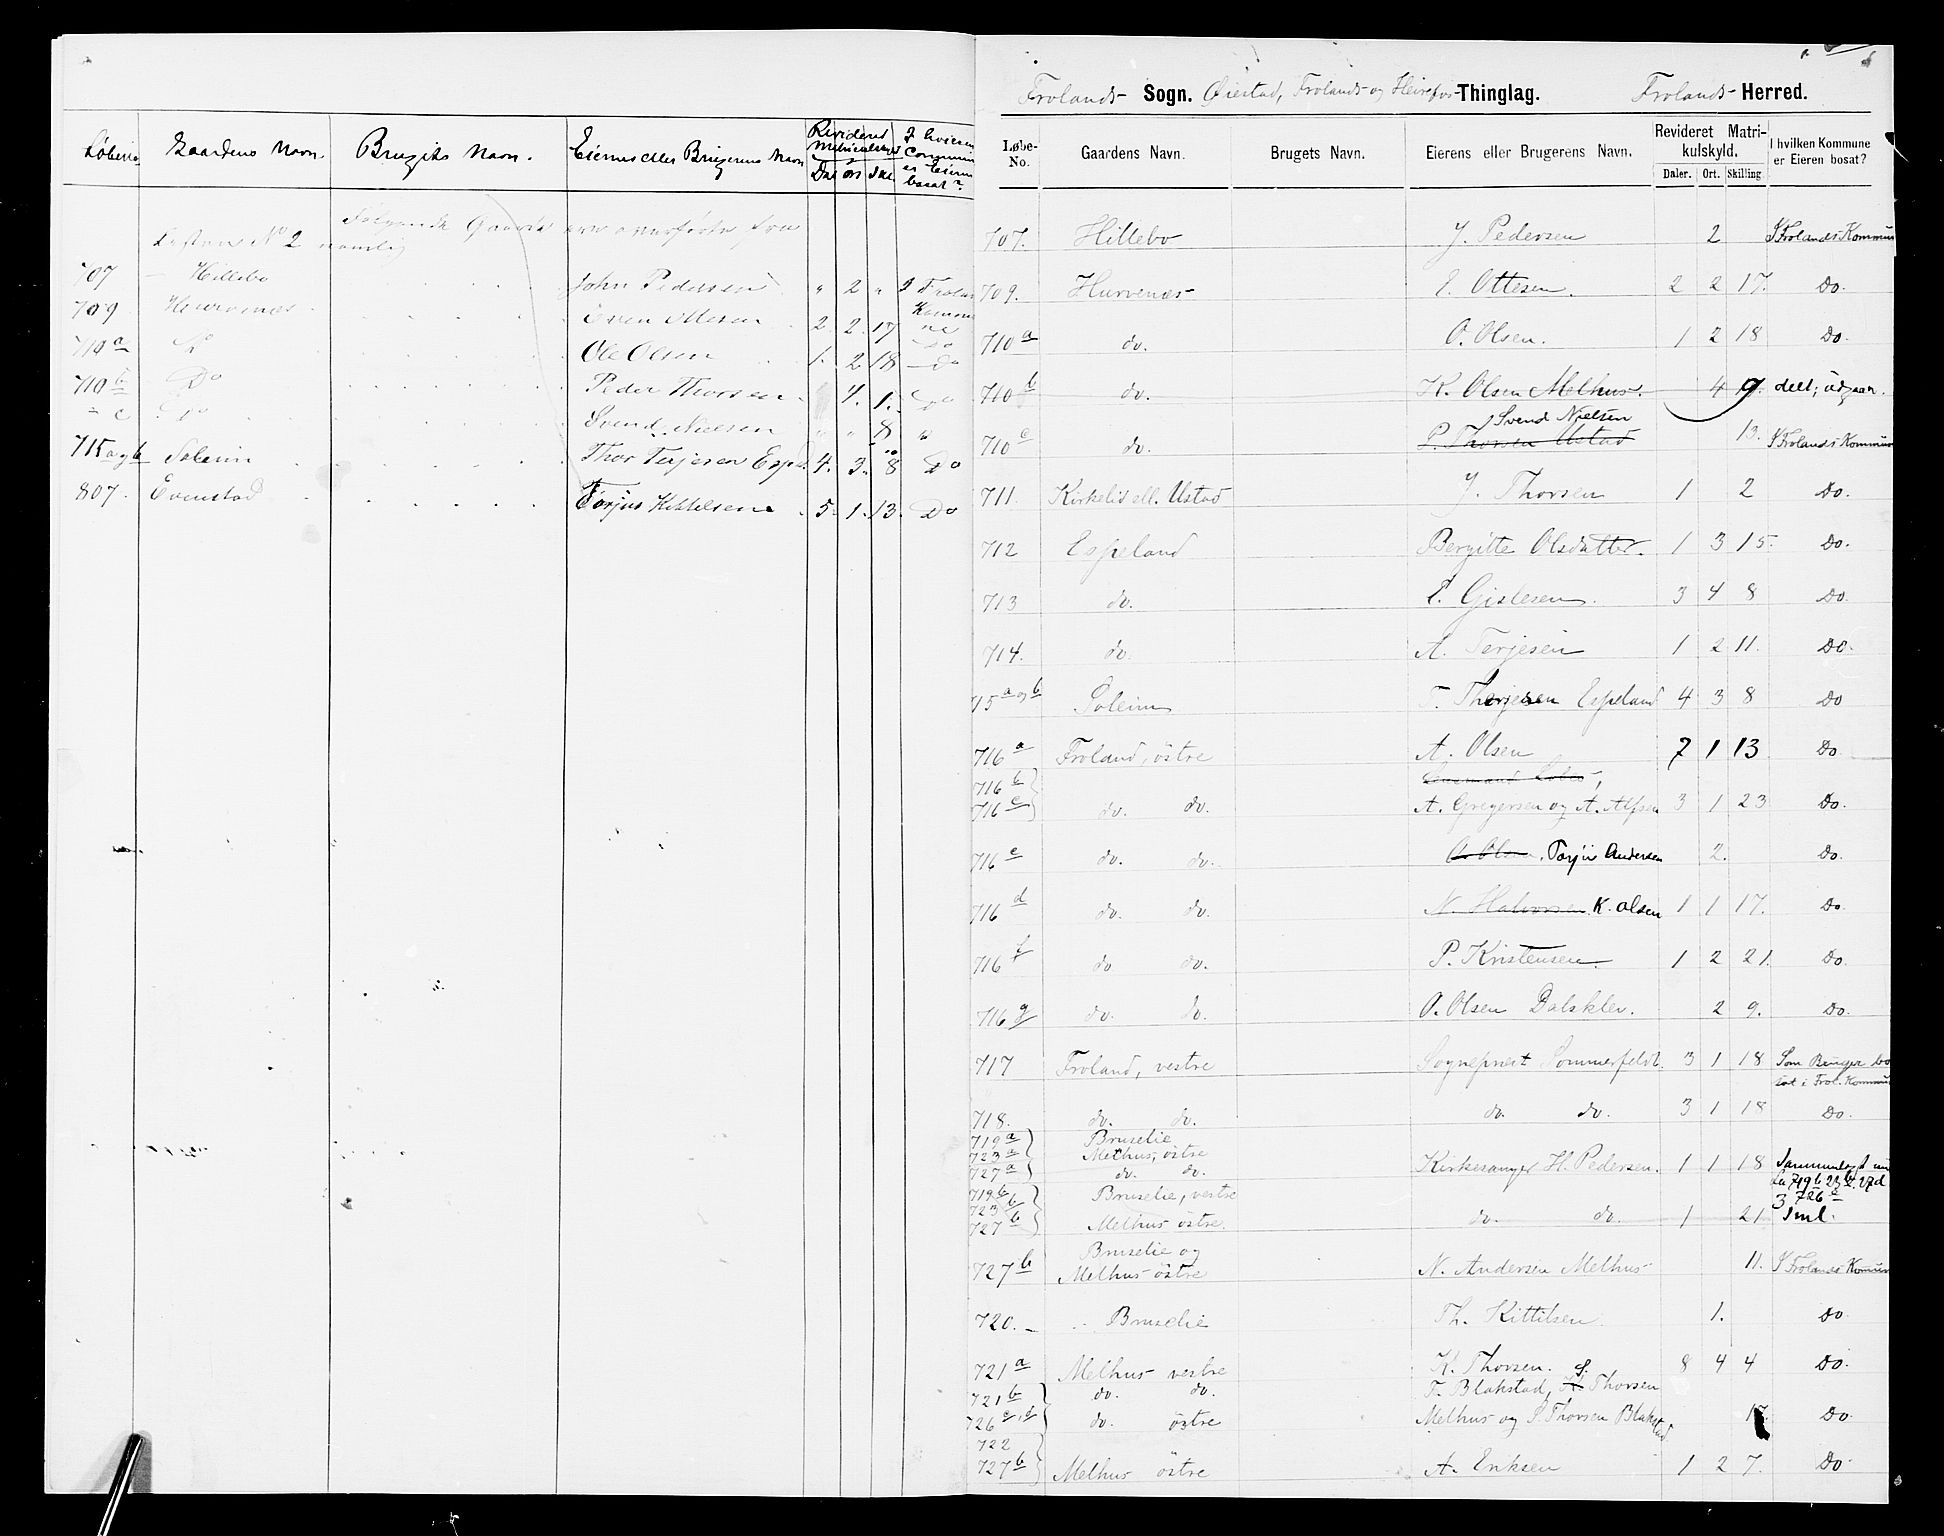 Løbeno Gaardens Navn. Brugets Navn. Eierens eller Brugerens Navn Revideret Matriculskyld Dal ort Skl. I hvilken Commune er Eieren bosat?
Følgende Gaarde ere overførte fra
Listen No 2 nemlig
707 — Hillebo John Pedersen " 2 " I Frolands Kommune
709 Hurvenes 2. 2. 17 Do
710 a Do Ole Olsen 1. 2 18 Do
710 b Do Peder Thorsen 4. 1. Do
" c Do Svend Nielsen " " 8 "
715 a og b Soleim Thor Terjesen Espel. 4. 3. 8 Do
807. Evenstad Torjus Kittelsen 5. 1. 13. Do
Frolands Sogn. Øiestad, Frolands og Heirefos Thinglag. Frolands Herred.
Løbe-No. Gaardens Navn. Brugets Navn. Eierens eller Brugerens Navn. Revideret Matrikulskyld. Daler. Ort. Skilling I hvilken Kommune er Eieren bosat?
707. Hillebo J. Pedersen 2 I Frolands Kommun
709. Hurvenes E. Ottesen. 2 2 17. Do.
710 a do. O. Olsen. 1 2 18 Do.
710 b do. K. Olsen Melhus. 4 9 delt; udgaar.
Svend Nielsen
710 c do. P. Thorsen Ustad 13. I Frolands Kommun
711. Kirkelid ell. Ustad J. Thorsen 1 2 Do.
712 Espeland Bergitte Olsdatter. 1 3 15. Do.
713 do. E. Gislesen. 3 4 8 Do.
714. do. A. Terjesen 1 2 11. Do.
715 a og b Soleim T. Therjesen Espeland 4 3 8 Do
716 a Froland, østre A. Olsen 7 1 13 Do.
716 b
716 c do. do. A. Gregersen og A. Alfsen 3 1 23 Do.
716 e do. do. O. Olsen, Torjus Andersen 2. Do.
716 d do. do. N. Halvorsen K. Olsen 1 1 17. Do
716 f do do. P. Kristensen. 1 2 21. Do.
716 g do. do. O. Olsen Dalsklev. 2 9. Do.
717 Froland, vestre Sogneprest Sommerfeldt. 3 1 18 Som Bruger bo
sat i Frol. Kommun
718. do. do. do. do. 3 1 18 Do.
719 a Bruselie
723 a Melhus, østre
727 a do. do. Kirkesanger H. Pedersen. 1 1 18 Sammenlagt
719 b Bruselie, vestre
723 b
727 b Melhus østre. do. do. 1 21
Bruselie og
727 b Melhus østre N. Andersen Melhus 11. I Frolands Kommun
720. Bruselie Th. Kittilsen. 1. Do
721 a Melhus vestre K. Thorsen. 8 4 4 Do.
721 b do. do. T. Blakstad, S. Thorsen
726 c, d do. østre Melhus og S. Thorsen Blakstad. 17. Do.
722
727 b Melhus østre A. Eriksen 1 2 7. Do.